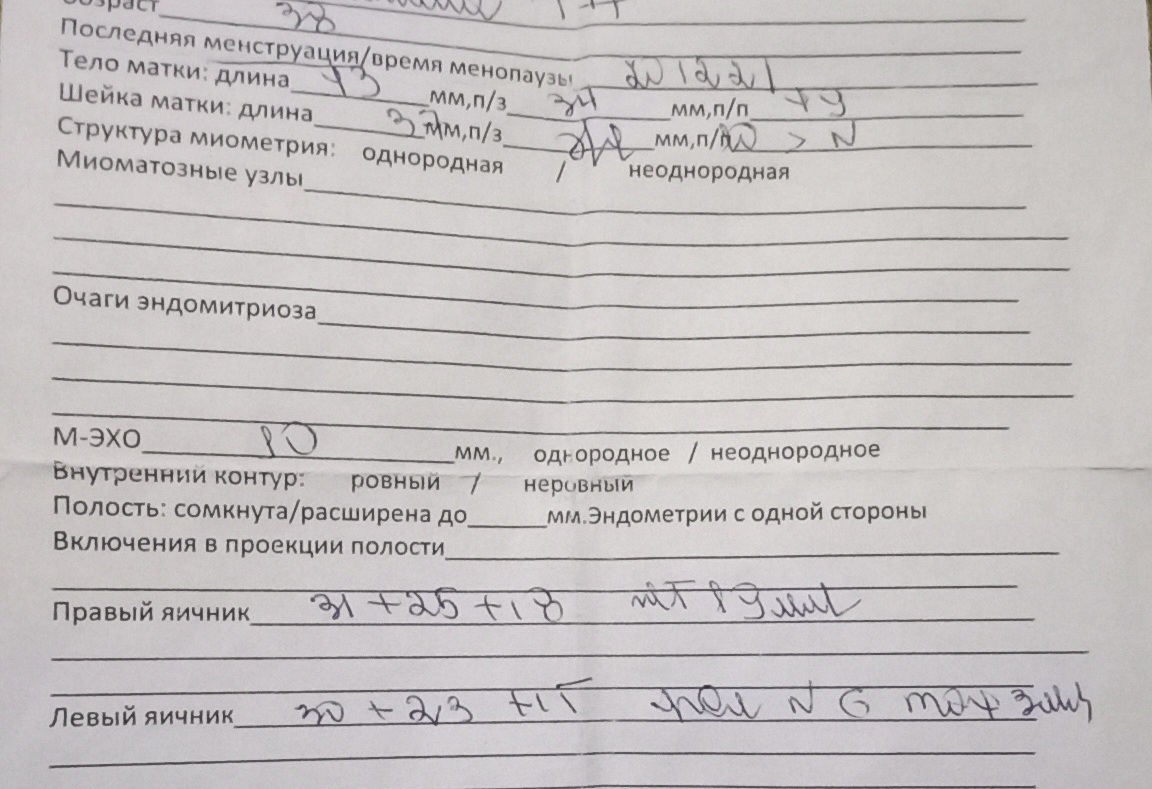 Возраст 38
Последняя менструация/время менопаузы
Тело матки: длина 43 мм,п/з 34 мм,п/п 49
Шейка матки: длина 32 мм,п/з мм,п/п > N
Структура миометрия: однородная / неоднородная
Миоматозные узлы
Очаги эндомитриоза
М-ЭХО 10 мм., однородное / неоднородное
Внутренний контур: ровный / неровный
Полость: сомкнута/расширена до мм.Эндометрии с одной стороны
Включения в проекции полости
Правый яичник 31 + 25 + 18
Левый яичник 30 + 23 + 15 фол N 6 max